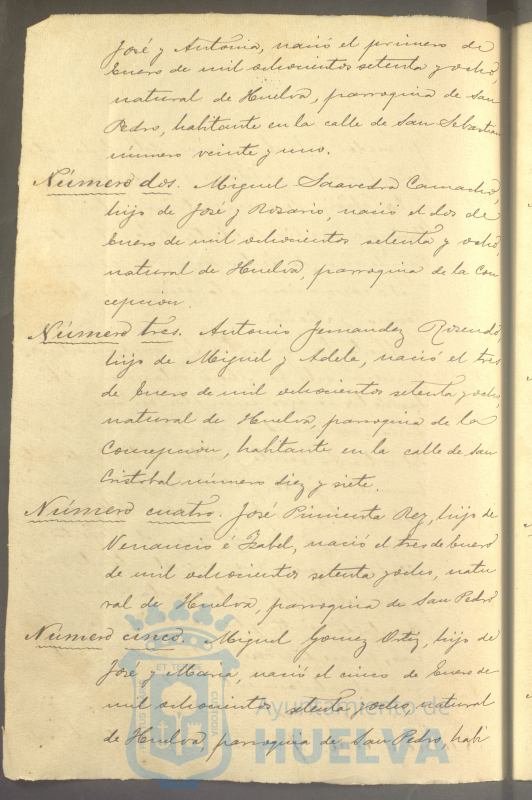 José y Antonia, nació el primero de
Enero de mil ochocientos setenta y ocho,
natural de Huelva, parroquia de San
Pedro, habitante en la calle de San Sebastian
número veinte y uno.
Número dos. Miguel Saavedra Camacho,
hijo de José y Rosario, nació el dos de
Enero de mil ochocientos setenta y ocho,
natural de Huelva, parroquia de la Con
cepcion.
Número tres. Antonio Fernandez Rosendo,
hijo de Miguel y Adela, nació el tres
de Enero de mil ochocientos setenta y ocho,
natural de Huelva, parroquia de la
Concepcion, habitante en la calle de San
Cristobal número diez y siete.
Número cuatro. José Pimienta Rey, hijo de
Venancio é Isabel, nació el tres de Enero
de mil ochocientos setenta y ocho, natu
ral de Huelva, parroquia de San Pedro
Numero cinco. Miguel Gomez Ortiz, hijo de
José y Maria, nació el cinco de Enero de
mil ochocientos setenta y ocho, natural
de Huelva, parroquia de San Pedro, habi
Ayuntamiento de
HUELVA